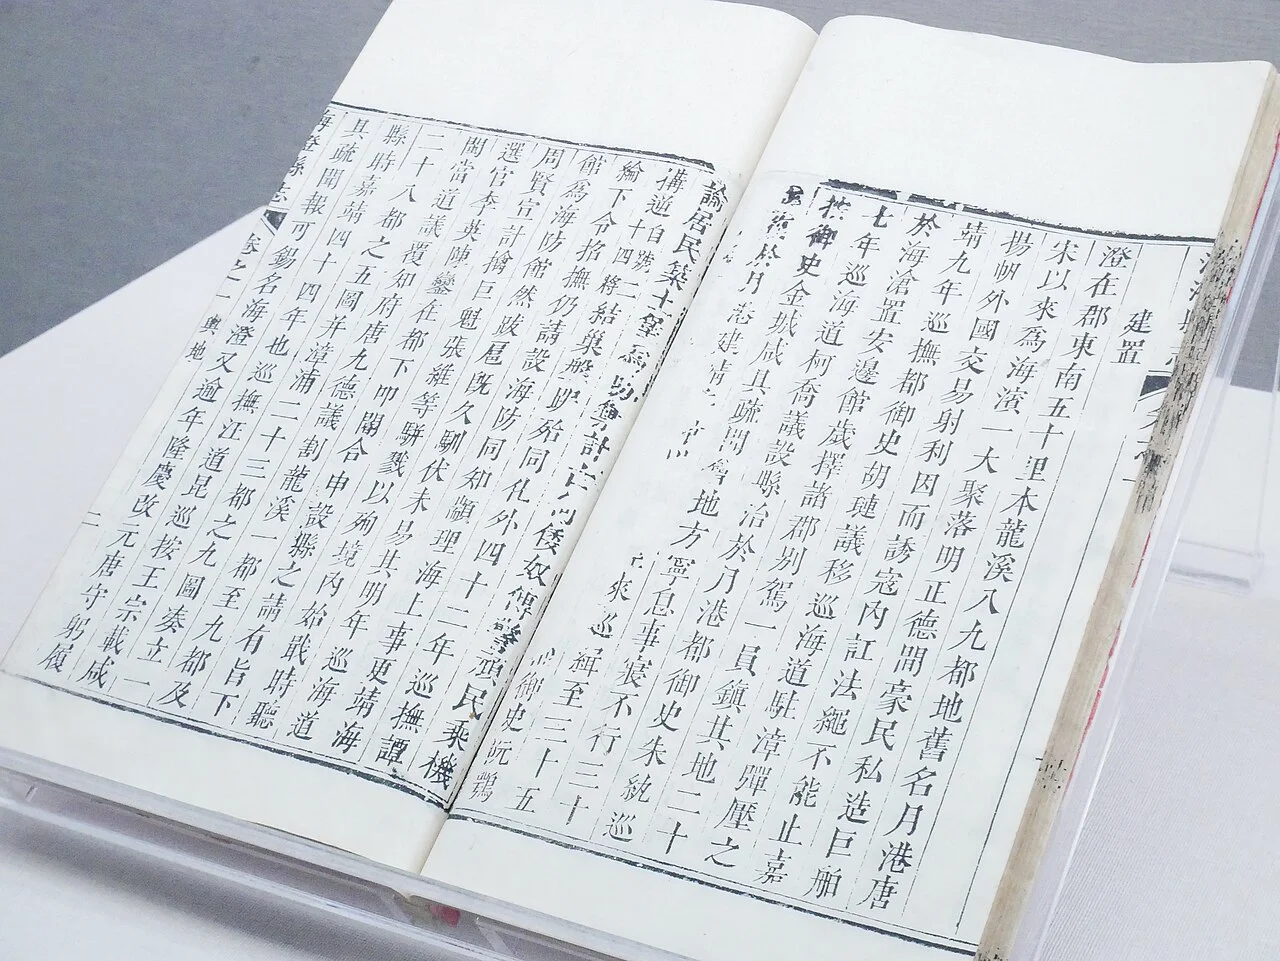 建置
澄在郡東南五十里本龍溪八九都地舊名月港唐
宋以來為海濱一大聚落明正德間豪民私造巨舶
揚帆外國交易射利因而誘寇內訌法繩不能止嘉
靖九年巡撫都御史胡璉議移巡海道駐漳彈壓之
於海滄置安邊館歲擇諸郡別駕一員鎮其地二十
七年巡海道柯喬議設縣治於月港都御史朱紈巡
按御史金城咸具疏聞 地方寧息事寢不行三十
於月港建靖 來巡緝至三十五
御史阮鶚
諭居民築土堡為 計 倭奴 民乘機
搆逆自號二十四將結巢盤踞殆同化外四十二年巡撫譚
綸下令招撫仍請設海防同知顓理海上事更靖海
館為海防館然跋扈既久馴伏未易其明年巡海道
周賢宣計擒巨魁張維等駢戮以殉境內始戢時聽
選官李英陳鑾在都下叩閽合申設縣之請有旨下
閩當道議覆知府唐九德議割龍溪一都至九都及
二十八都之五圖并漳浦二十三都之九圖湊立一
縣時嘉靖四十四年也巡撫汪道昆巡按王宗載咸
具疏聞報可錫名海澄又逾年隆慶改元唐守躬履
海澄縣志 卷之一 輿地 二